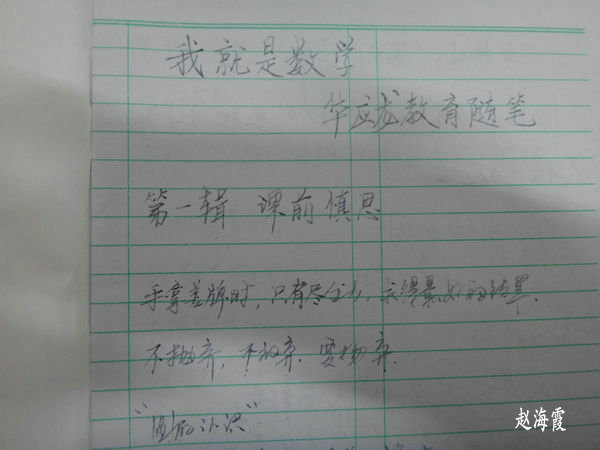 我就是数学
华应龙教育随笔
第一辑 课前慎思
手拿差牌时,只有尽全力,去得最好的结果.
不抛弃,不放弃.要扬弃.
"圆的认识"
赵海霞